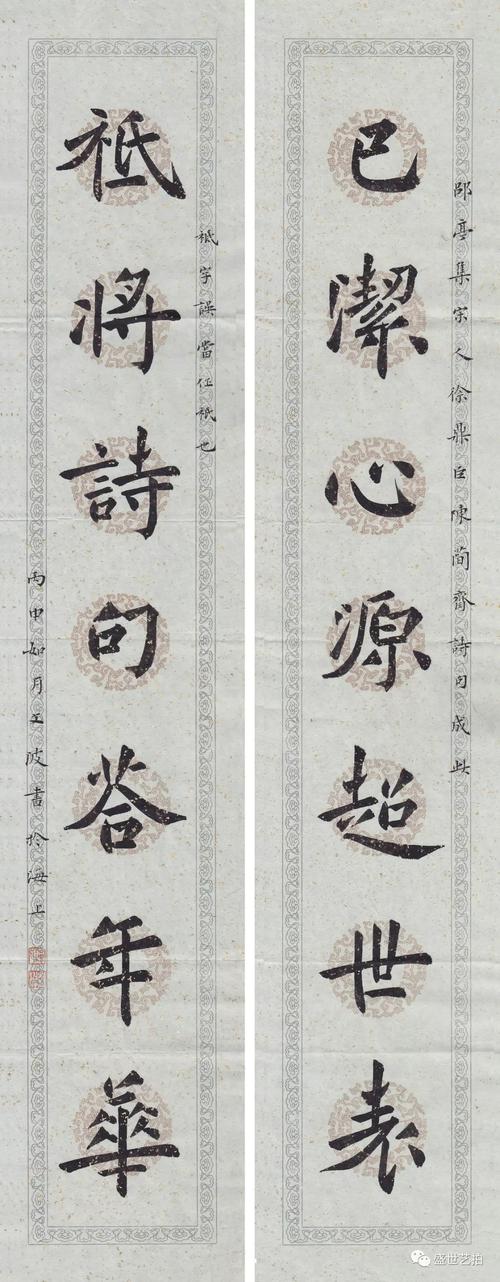 郘亭集宋人徐鼎臣陳簡齋詩句成此
已潔心源超世表
祗字誤當作祇也
祗將詩句荅年華
丙申如月王陂書於海上
盛世艺拍